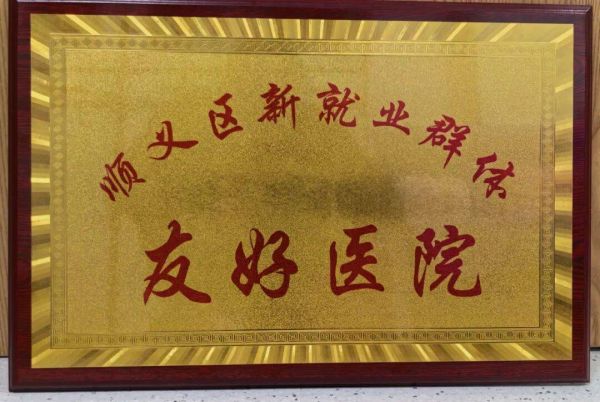 顺义区新就业群体
友好医院